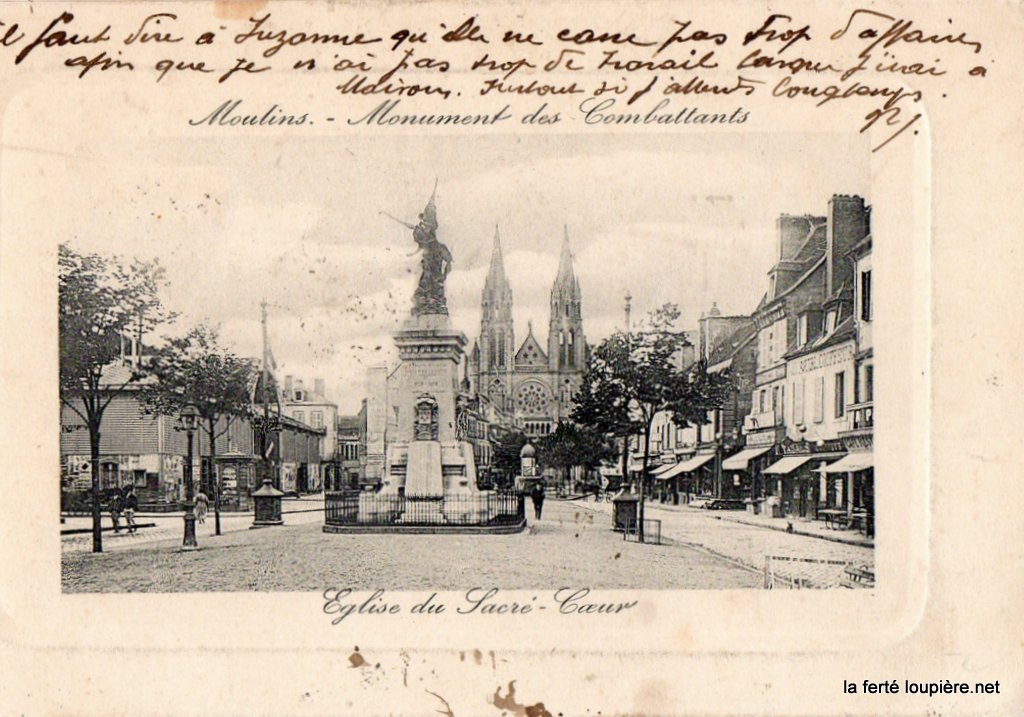 il faut dire à Suzanne qu'elle ne casse pas trop d'affaires
afin que je n'ai pas trop de travail lorsque j'irai à
Moulins. Surtout si j'attends longtemps.
Moulins. - Monument des Combattants
Eglise du Sacré-Cœur
la ferté loupière.net